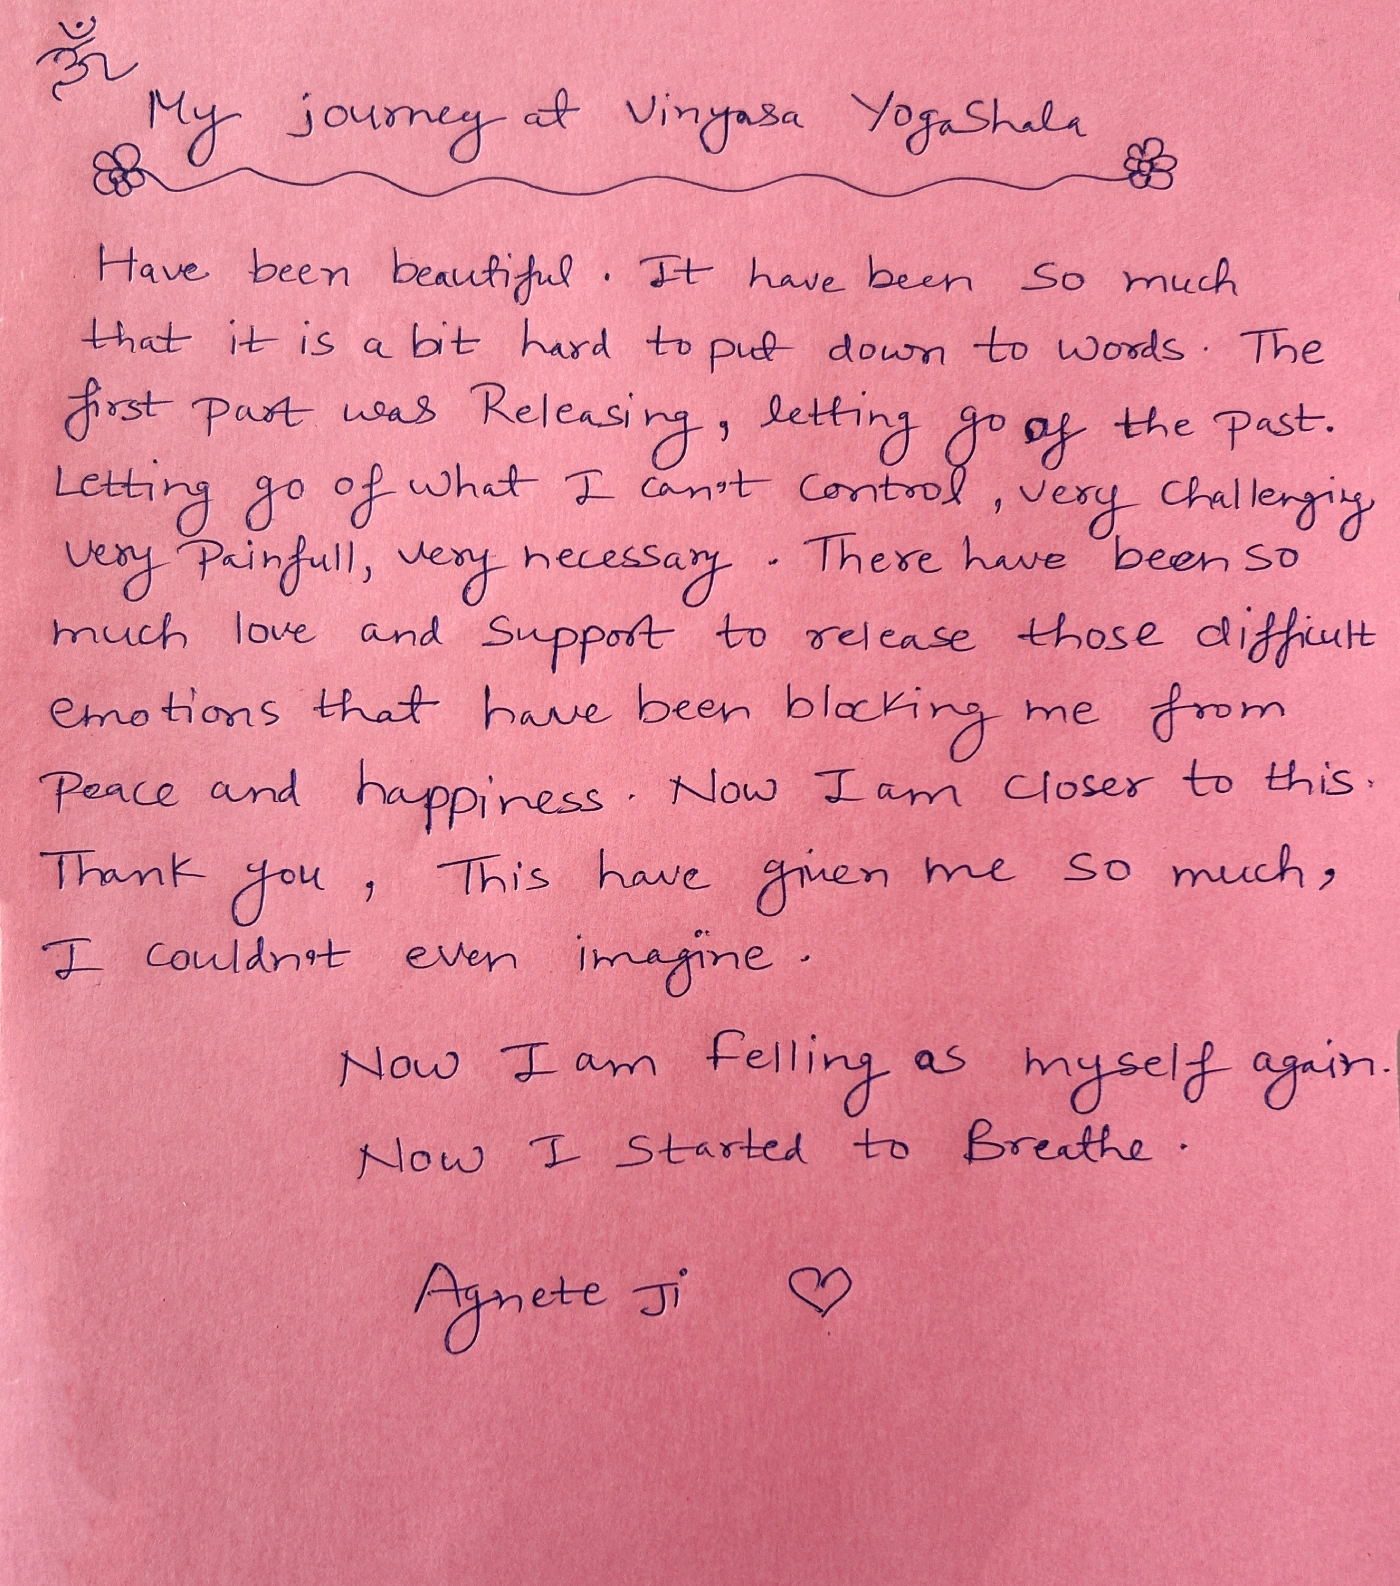 ॐ
My journey at Vinyasa YogaShala
Have been beautiful. It have been so much
that it is a bit hard to put down to words. The
first part was Releasing, letting go of the past.
Letting go of what I can't control, very challenging
very Painfull, very necessary. There have been so
much love and support to release those difficult
emotions that have been blocking me from
Peace and happiness. Now I am closer to this.
Thank you, This have given me so much,
I couldn't even imagine.
Now I am felling as myself again.
Now I started to Breathe.
Agnete Ji ♡